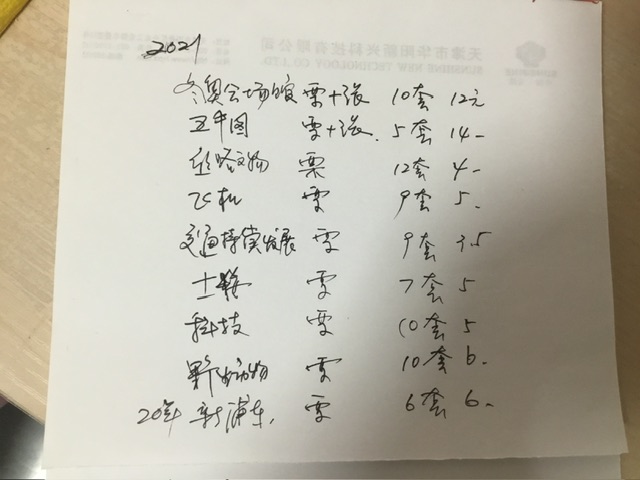 天津市华阳新兴科技有限公司
SUNSHINE NEW TECHNOLOGY CO.,LTD
2021
冬奥会场馆 票+张 10套 12元
票+张. 5套 14-
丝路文物 票 12套 4-
飞机 票 9套 5.
交通持续发展 票 9套 3.5
票 7套 5
科技 票 10套 5
野生动物 票 10套 6.
20年 新浦东. 票 6套 6.